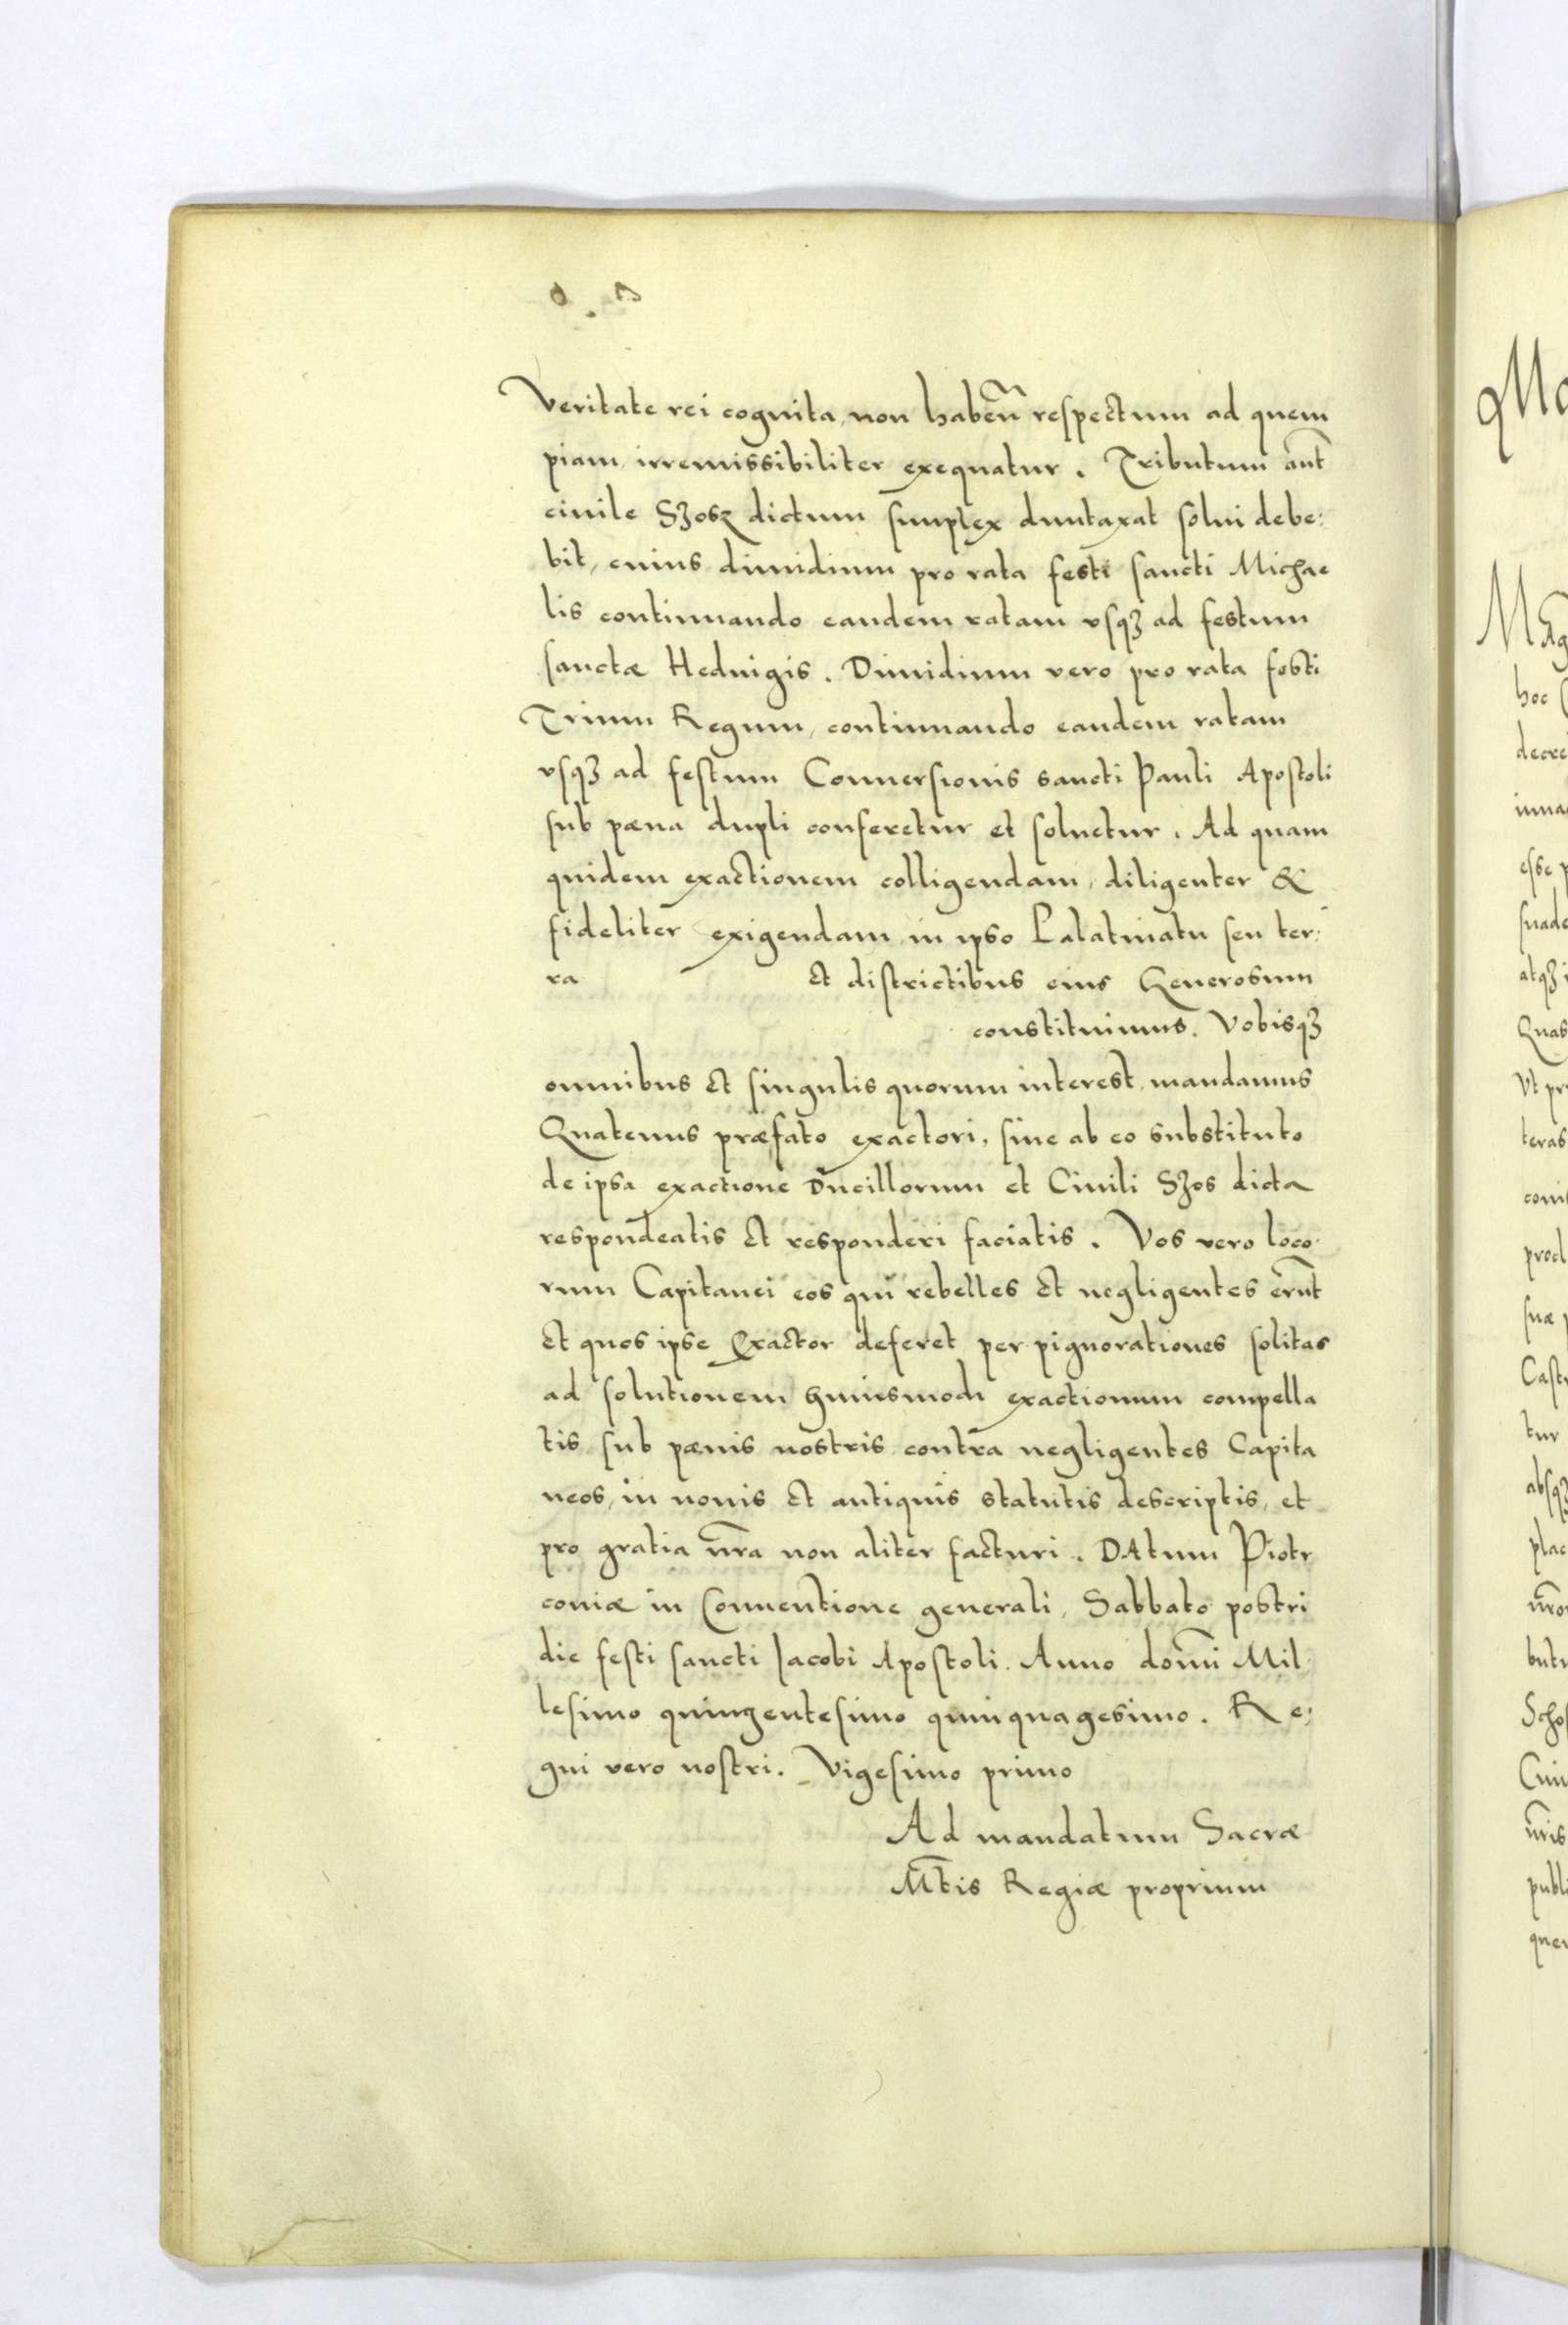 Veritate rei cognita, non habeñ respectum ad quem
piam, irremissibiliter exequatur. Tributum aut̃
ciuile SZosz dictum simplex duntaxat solui debe:
bit, cuius dimidium pro rata festi sancti Michae
lis continuando eandem ratam vsqꝫ ad festum
sanctæ Heduigis. Dimidium vero pro rata festi
Trium Regum, continuando eandem ratam
vsqꝫ ad festum Conuersionis sancti Pauli Apostoli
sub pæna dupli conferetur et soluetur. Ad quam
quidem exactionem colligendam, diligenter &
fideliter exigendam, in ipso Palatinatu seu ter:
ra et districtibus eius Generosum
constituimus. Vobisqꝫ
omnibus et singulis quorum interest, mandamus
Quatenus præfato exactori, siue ab eo substituto
de ipsa exactione Ducillorum et Ciuili SZos dicta
respondeatis et responderi faciatis. Vos vero loco
rum Capitanei eos qui rebelles et negligentes erũt
et quos ipse Exactor deferet per pignorationes solitas
ad solutionem huiusmodi exactionum compella
tis, sub pænis nostris contra negligentes Capita
neos, in nouis et antiquis statutis descriptis, et
pro gratia nr̃a non aliter facturi. DAtum Piotr
coniæ in Conuentione generali, Sabbato postri
die festi sancti Iacobi Apostoli. Anno domĩ Mil
lesimo quingentesimo quinquagesimo. Re:
gni vero nostri. Vigesimo primo
Ad mandatum Sacræ
Mt̃is Regiæ proprium